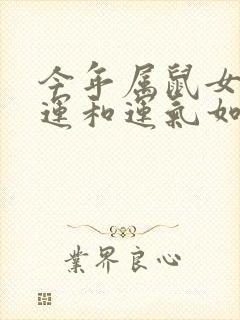 今年属鼠女
運和運氣如
業界良心